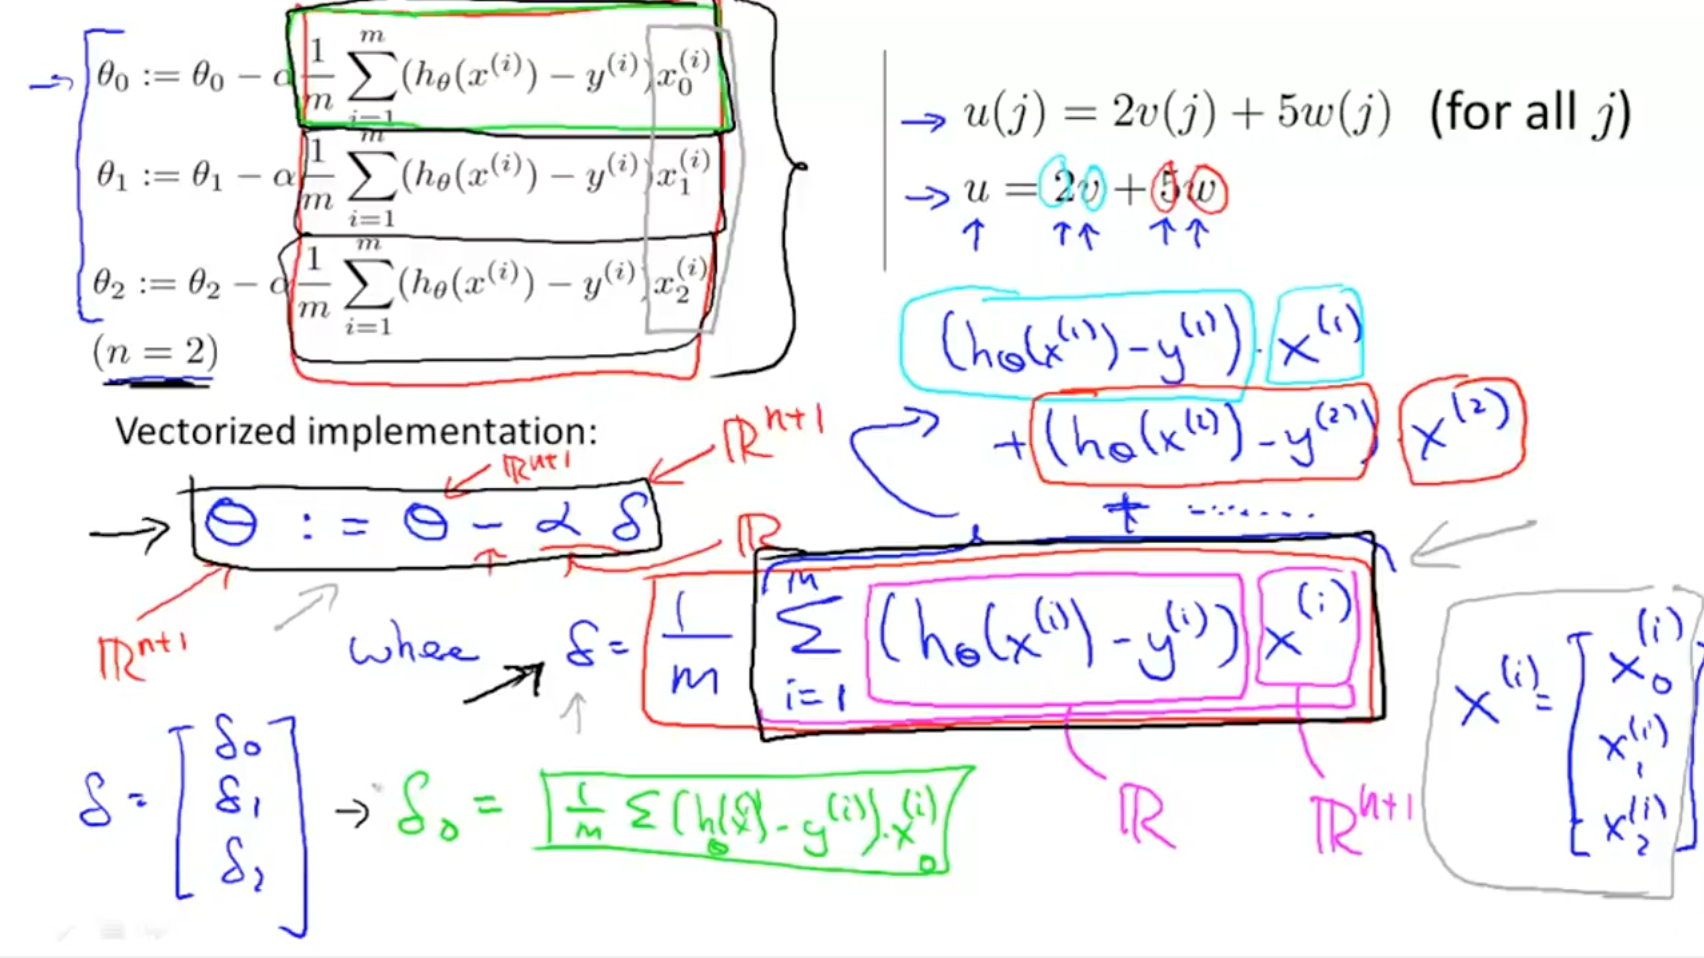 θ₀ := θ₀ − α 1/m ∑_{i=1}^{m} (h_θ(x^{(i)}) − y^{(i)}) x₀^{(i)}
θ₁ := θ₁ − α 1/m ∑_{i=1}^{m} (h_θ(x^{(i)}) − y^{(i)}) x₁^{(i)}
θ₂ := θ₂ − α 1/m ∑_{i=1}^{m} (h_θ(x^{(i)}) − y^{(i)}) x₂^{(i)}
(n = 2)
→ u(j) = 2v(j) + 5w(j) (for all j)
→ u = 2v + 5w
(h_θ(x^{(1)}) − y^{(1)}) · x^{(1)}
+ (h_θ(x^{(2)}) − y^{(2)}) x^{(2)}
+ .......
Vectorized implementation:
ℝ^{n+1}
ℝ^{n+1}
→ θ := θ − α δ
ℝ
ℝ^{n+1}
where → δ = 1/m ∑_{i=1}^{m} (h_θ(x^{(i)}) − y^{(i)}) x^{(i)}
ℝ
ℝ^{n+1}
x^{(i)} = [x₀^{(i)}
x₁^{(i)}
x₂^{(i)}]
δ = [δ₀
δ₁
δ₂]
→ δ₀ = 1/m ∑ (h_θ(x^{(i)}) − y^{(i)}) · x₀^{(i)}